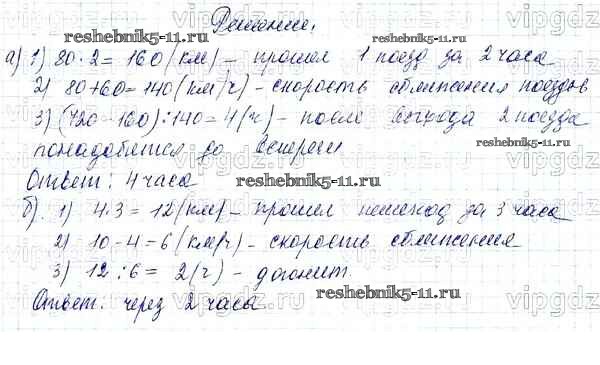 Решение.
а) 1) 80·2=160(км) – прошел 1 поезд за 2 часа
2) 80+60=140(км/ч) – скорость сближения поездов
3) (720-160):140=4(ч) – после выхода 2 поезда
понадобится до встречи
Ответ: 4 часа
б). 1) 4·3=12(км) – прошел пешеход за 3 часа
2) 10-4=6(км/ч) – скорость сближения
3) 12:6= 2(ч) – догонит.
Ответ: через 2 часа
reshebnik5-11.ru
reshebnik5-11.ru
reshebnik5-11.ru
reshebnik5-11.ru
reshebnik5-11.ru
vipgdz